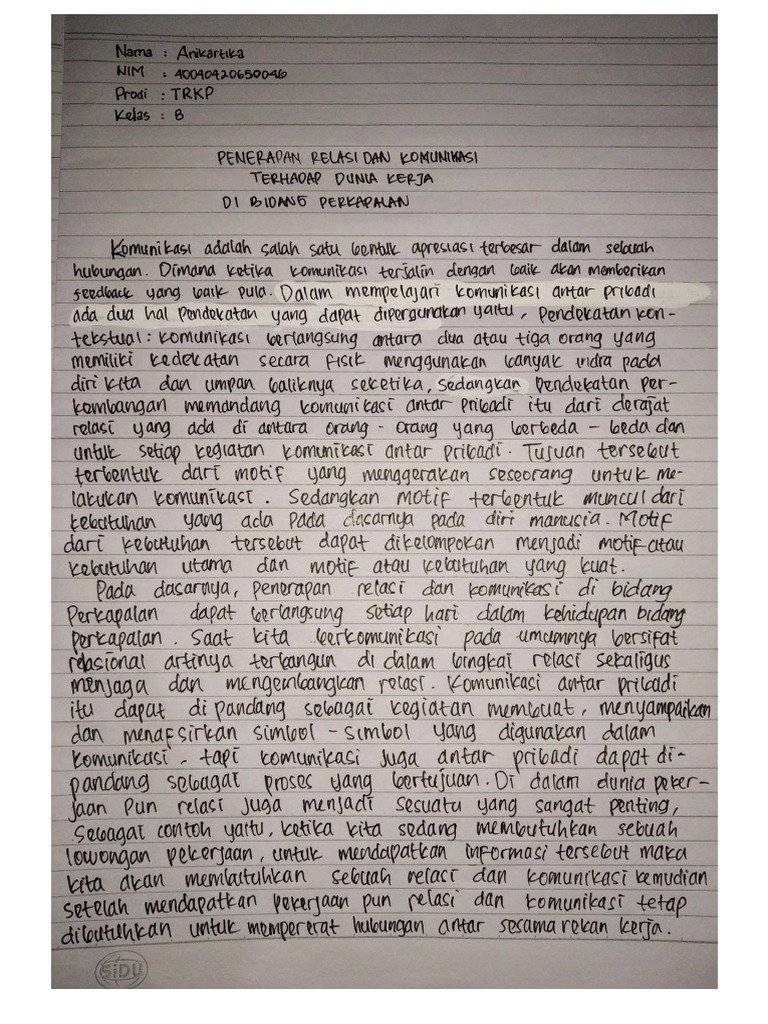 Nama : Anikartika
NIM : 40040420650046
Prodi : TRKP
Kelas : B
PENERAPAN RELASI DAN KOMUNIKASI
TERHADAP DUNIA KERJA
DI BIDANG PERKAPALAN
Komunikasi adalah salah satu bentuk apresiasi terbesar dalam sebuah
hubungan. Dimana ketika komunikasi terjalin dengan baik akan memberikan
feedback yang baik pula. Dalam mempelajari komunikasi antar pribadi
ada dua hal Pendekatan yang dapat dipergunakan yaitu, Pendekatan kon-
tekstual : komunikasi berlangsung antara dua atau tiga orang yang
memiliki kedekatan secara fisik menggunakan banyak indra pada
diri kita dan umpan baliknya seketika, sedangkan pendekatan per-
kembangan memandang komunikasi antar pribadi itu dari derajat
relasi yang ada di antara orang - orang yang berbeda - beda dan
untuk setiap kegiatan komunikasi antar pribadi. Tujuan tersebut
terbentuk dari motif yang menggerakan seseorang untuk me-
lakukan komunikasi. Sedangkan motif terbentuk muncul dari
kebutuhan yang ada pada dasarnya pada diri manusia. Motif
dari kebutuhan tersebut dapat dikelompokan menjadi motif atau
kebutuhan utama dan motif atau kebutuhan yang kuat.
Pada dasarnya, penerapan relasi dan komunikasi di bidang
Perkapalan dapat berlangsung setiap hari dalam kehidupan bidang
perkapalan. Saat kita berkomunikasi pada umumnya bersifat
relasional artinya terbangun di dalam bingkai relasi sekaligus
menjaga dan mengembangkan relasi. Komunikasi antar pribadi
itu dapat di pandang sebagai kegiatan membuat, menyampaikan
dan menafsirkan simbol - simbol yang digunakan dalam
komunikasi, tapi komunikasi juga antar pribadi dapat di-
pandang sebagai proses yang bertujuan. Di dalam dunia peker-
jaan pun relasi juga menjadi sesuatu yang sangat penting,
Sebagai contoh yaitu, ketika kita sedang membutuhkan sebuah
lowongan pekerjaan, untuk mendapatkan informasi tersebut maka
kita akan membutuhkan sebuah relasi dan komunikasi kemudian
setelah mendapatkan pekerjaan pun relasi dan komunikasi tetap
dibutuhkan untuk mempererat hubungan antar sesama rekan kerja.
SiDU